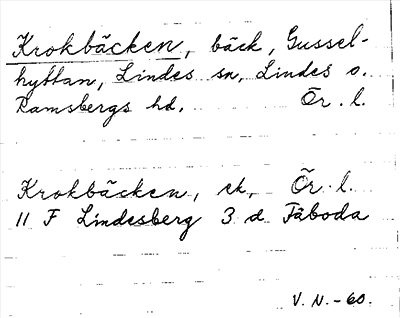 Krokbäcken, bäck, Gussel-
hyttan, Lindes sn, Lindes o.
Ramsbergs hd. Ör. l.
Krokbäcken, ek, Ör. l.
11 F Lindesberg 3 d Fäboda
V. N. -60.